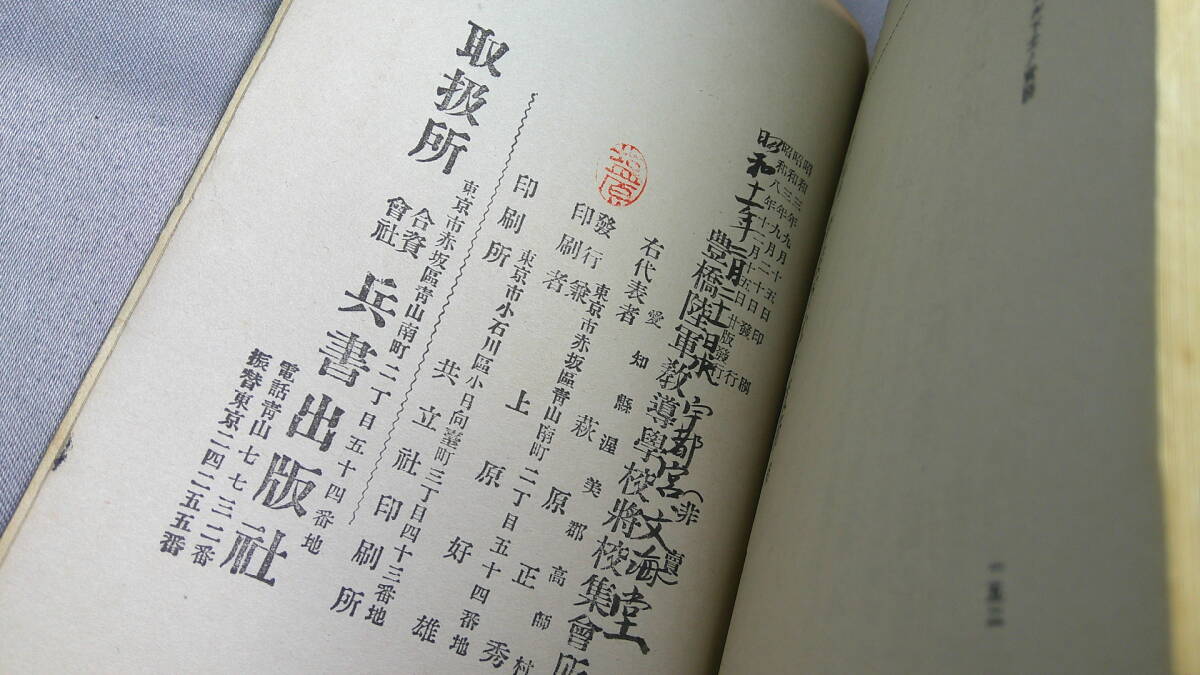 昭和三年九月十五日印刷
昭和三年九月二十日發行
昭和八年十二月十五日廿版發行
昭和十一年二月
宇都宮文海堂
(非賣
豊橋陸軍教導學校將校集會所
愛知縣渥美郡高師村
右代表者 萩原正秀
東京市赤坂區青山南町二丁目五十四番地
發行兼印刷者 上原好雄
東京市小石川區小日向臺町三丁目四十三番地
印刷所 共立社印刷所
東京市赤坂區青山南町二丁目五十四番地
取扱所 合資會社 兵書出版社
電話青山七七三二番
振替東京二四二五五番
一五二